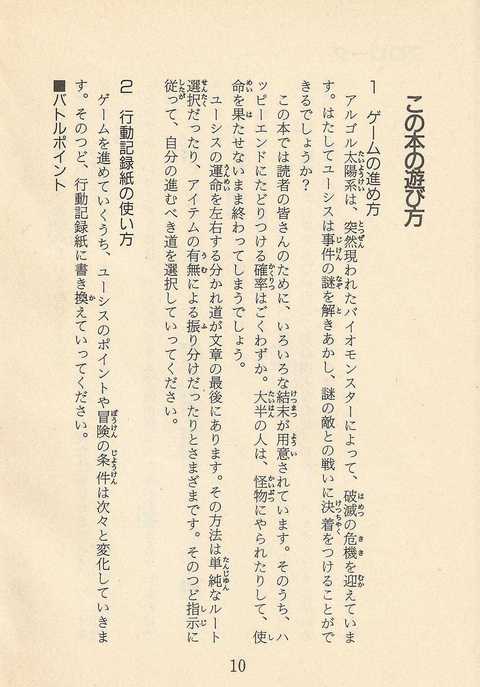 この本の遊び方
1 ゲームの進め方
アルゴル太陽系は、突然現われたバイオモンスターによって、破滅の危機を迎えていま
す。はたしてユーシスは事件の謎を解きあかし、謎の敵との戦いに決着をつけることがで
きるでしょうか?
この本では読者の皆さんのために、いろいろな結末が用意されています。そのうち、ハ
ッピーエンドにたどりつける確率はごくわずか。大半の人は、怪物にやられたりして、使
命を果たせないまま終わってしまうでしょう。
ユーシスの運命を左右する分かれ道が文章の最後にあります。その方法は単純なルート
選択だったり、アイテムの有無による振り分けだったりとさまざまです。そのつど指示に
従って、自分の進むべき道を選択していってください。
2 行動記録紙の使い方
ゲームを進めていくうち、ユーシスのポイントや冒険の条件は次々と変化していきま
す。そのつど、行動記録紙に書き換えていってください。
■バトルポイント
10